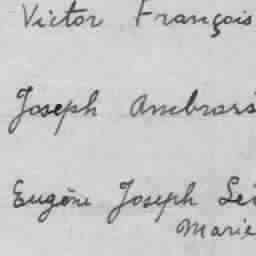 Victor François
Joseph Ambrois
Eugène Joseph Lé
Marie